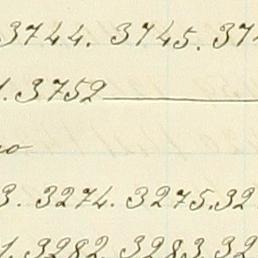 3744. 3745. 374
1. 3752
no
3. 3274. 3275. 32
1. 3282. 3283. 32